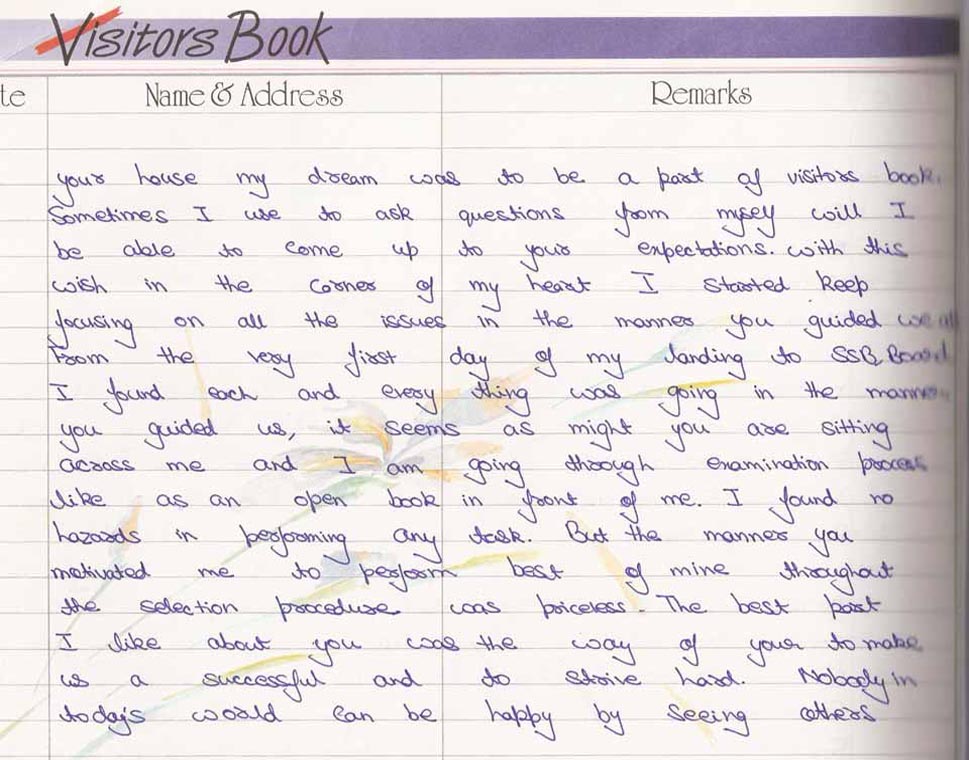 Visitors Book
te Name & Address Remarks
your house my dream was to be a part of visitors book.
Sometimes I use to ask questions from mysey will I
be able to come up to your expectations. with this
wish in the corner of my heart I started keep
focusing on all the issues in the manner you guided we all
From the very first day of my landing to SSB, Board
I found each and every thing was going in the manner
you guided us, it seems as might you are sitting
across me and I am going through examination process
like as an open book in front of me. I found no
hazards in performing any task. But the manner you
motivated me to perform best of mine throughout
the selection procedure was priceless. The best part
I like about you was the way of your to make
us a successful and to strive hard. Nobody in
today's world can be happy by seeing others